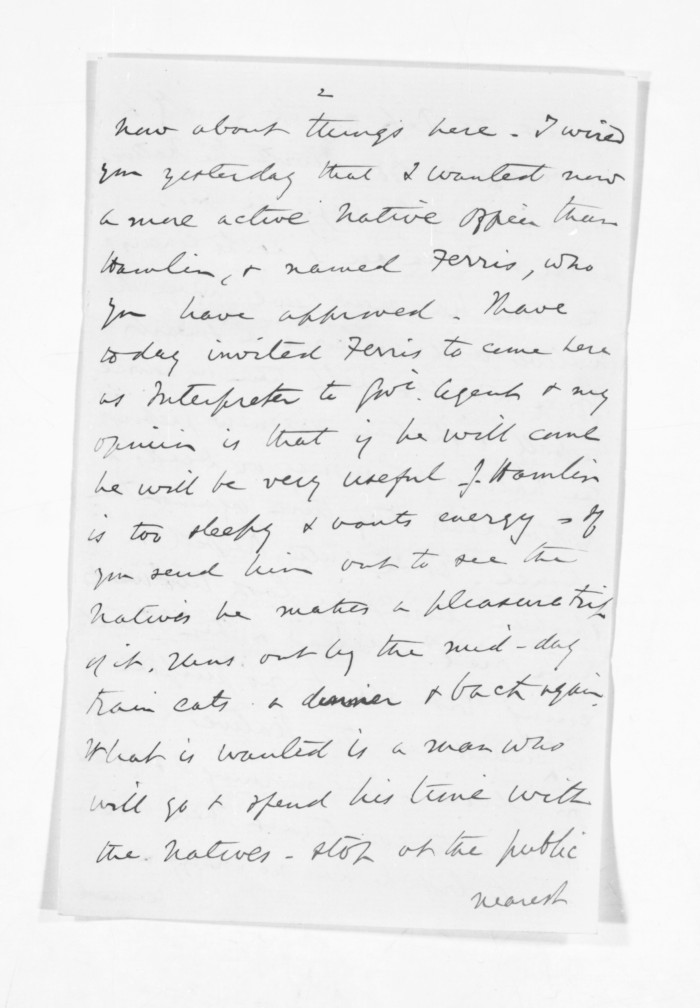 2
now about things here - I wired
you yesterday that I wanted now
a more active Native Officer than
Hamlin, & named Ferris, who
you have approved - I have
today invited Ferris to come here
as Interpreter to Govt. Agent & my
opinion is that if he will come
he will be very useful J. Hamlin
is too sleepy & wants energy - If
you send him out to see the
Natives he makes a pleasure trip
of it. Runs out by the mid-day
train eats a dinner & back again.
What is wanted is a man who
will go & spend his time with
the Natives - stop at the public
nearest